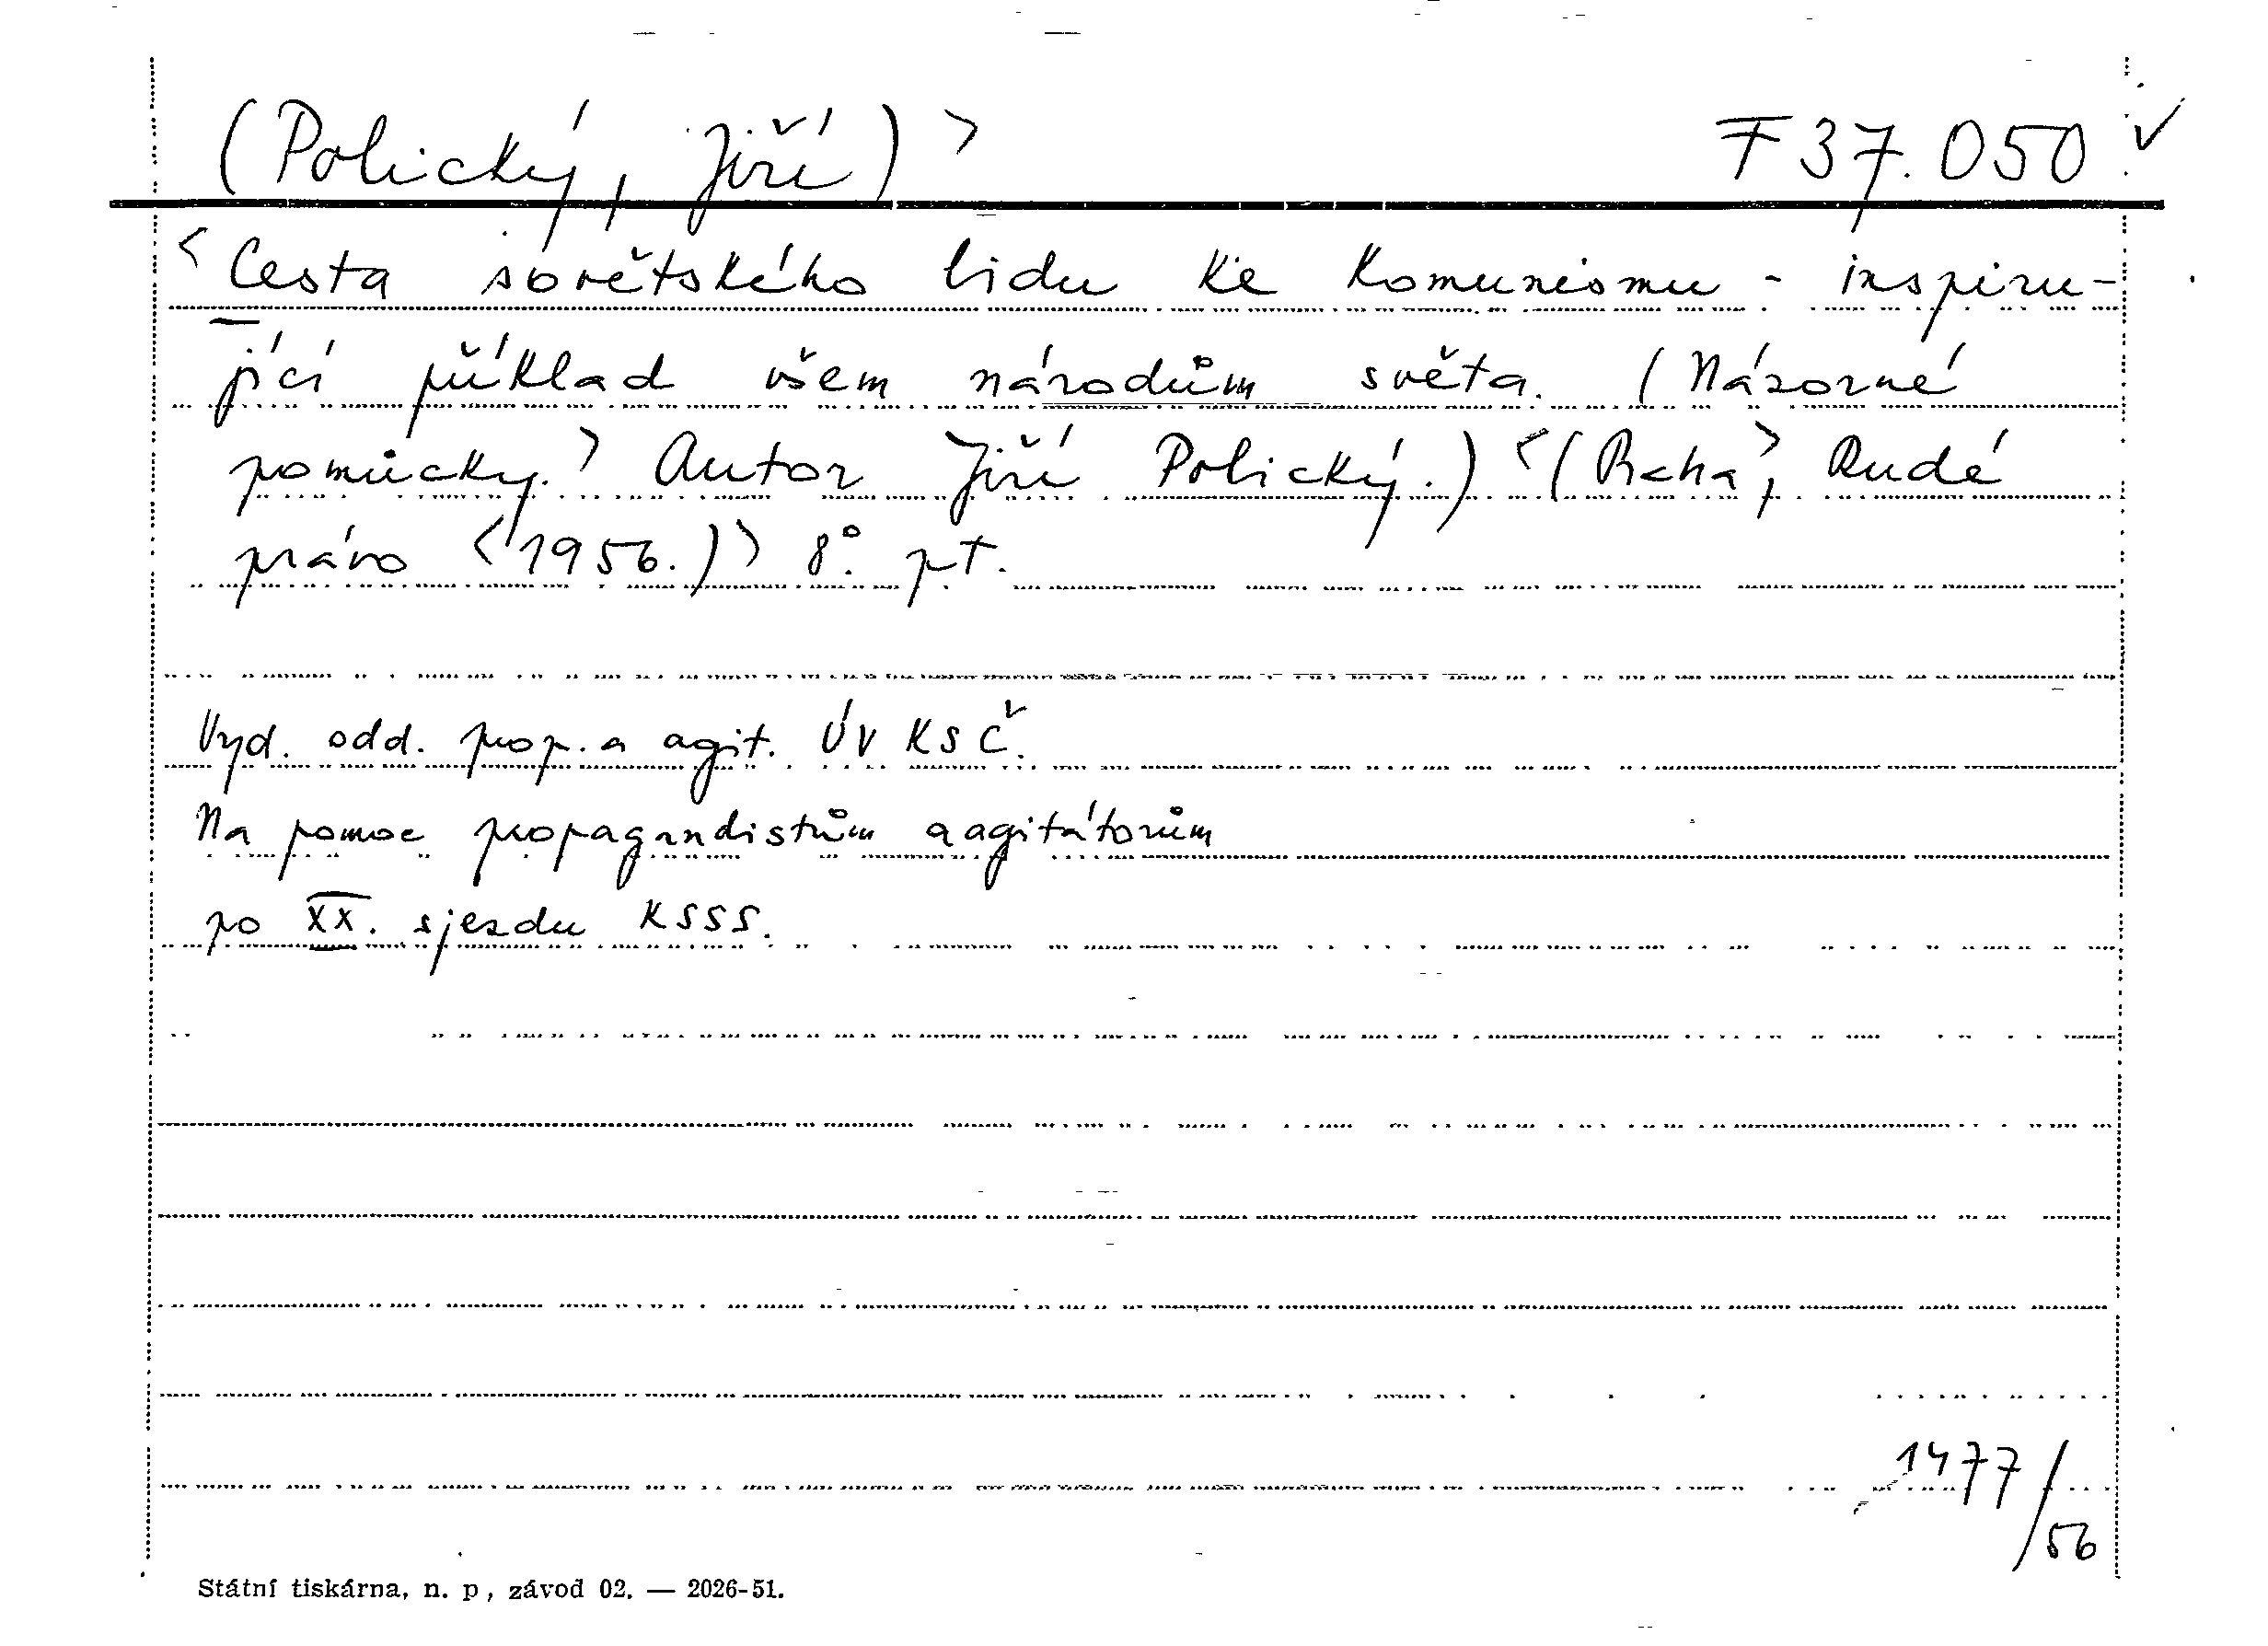 (Polický, Jiří) > F 37.050 ✓
< Cesta sovětského lidu ke komunismu - inspiru-
jící příklad všem národům světa. (Názorné
pomůcky.> Autor Jiří Polický.) <(Praha>, Rudé
právo <1956.)> 8°. pt.
Vyd. odd. prop. a agit. ÚV KSČ.
Na pomoc propagandistům a agitátorům
po XX. sjezdu KSSS.
1477/56
Státní tiskárna, n. p, závod 02. — 2026-51.